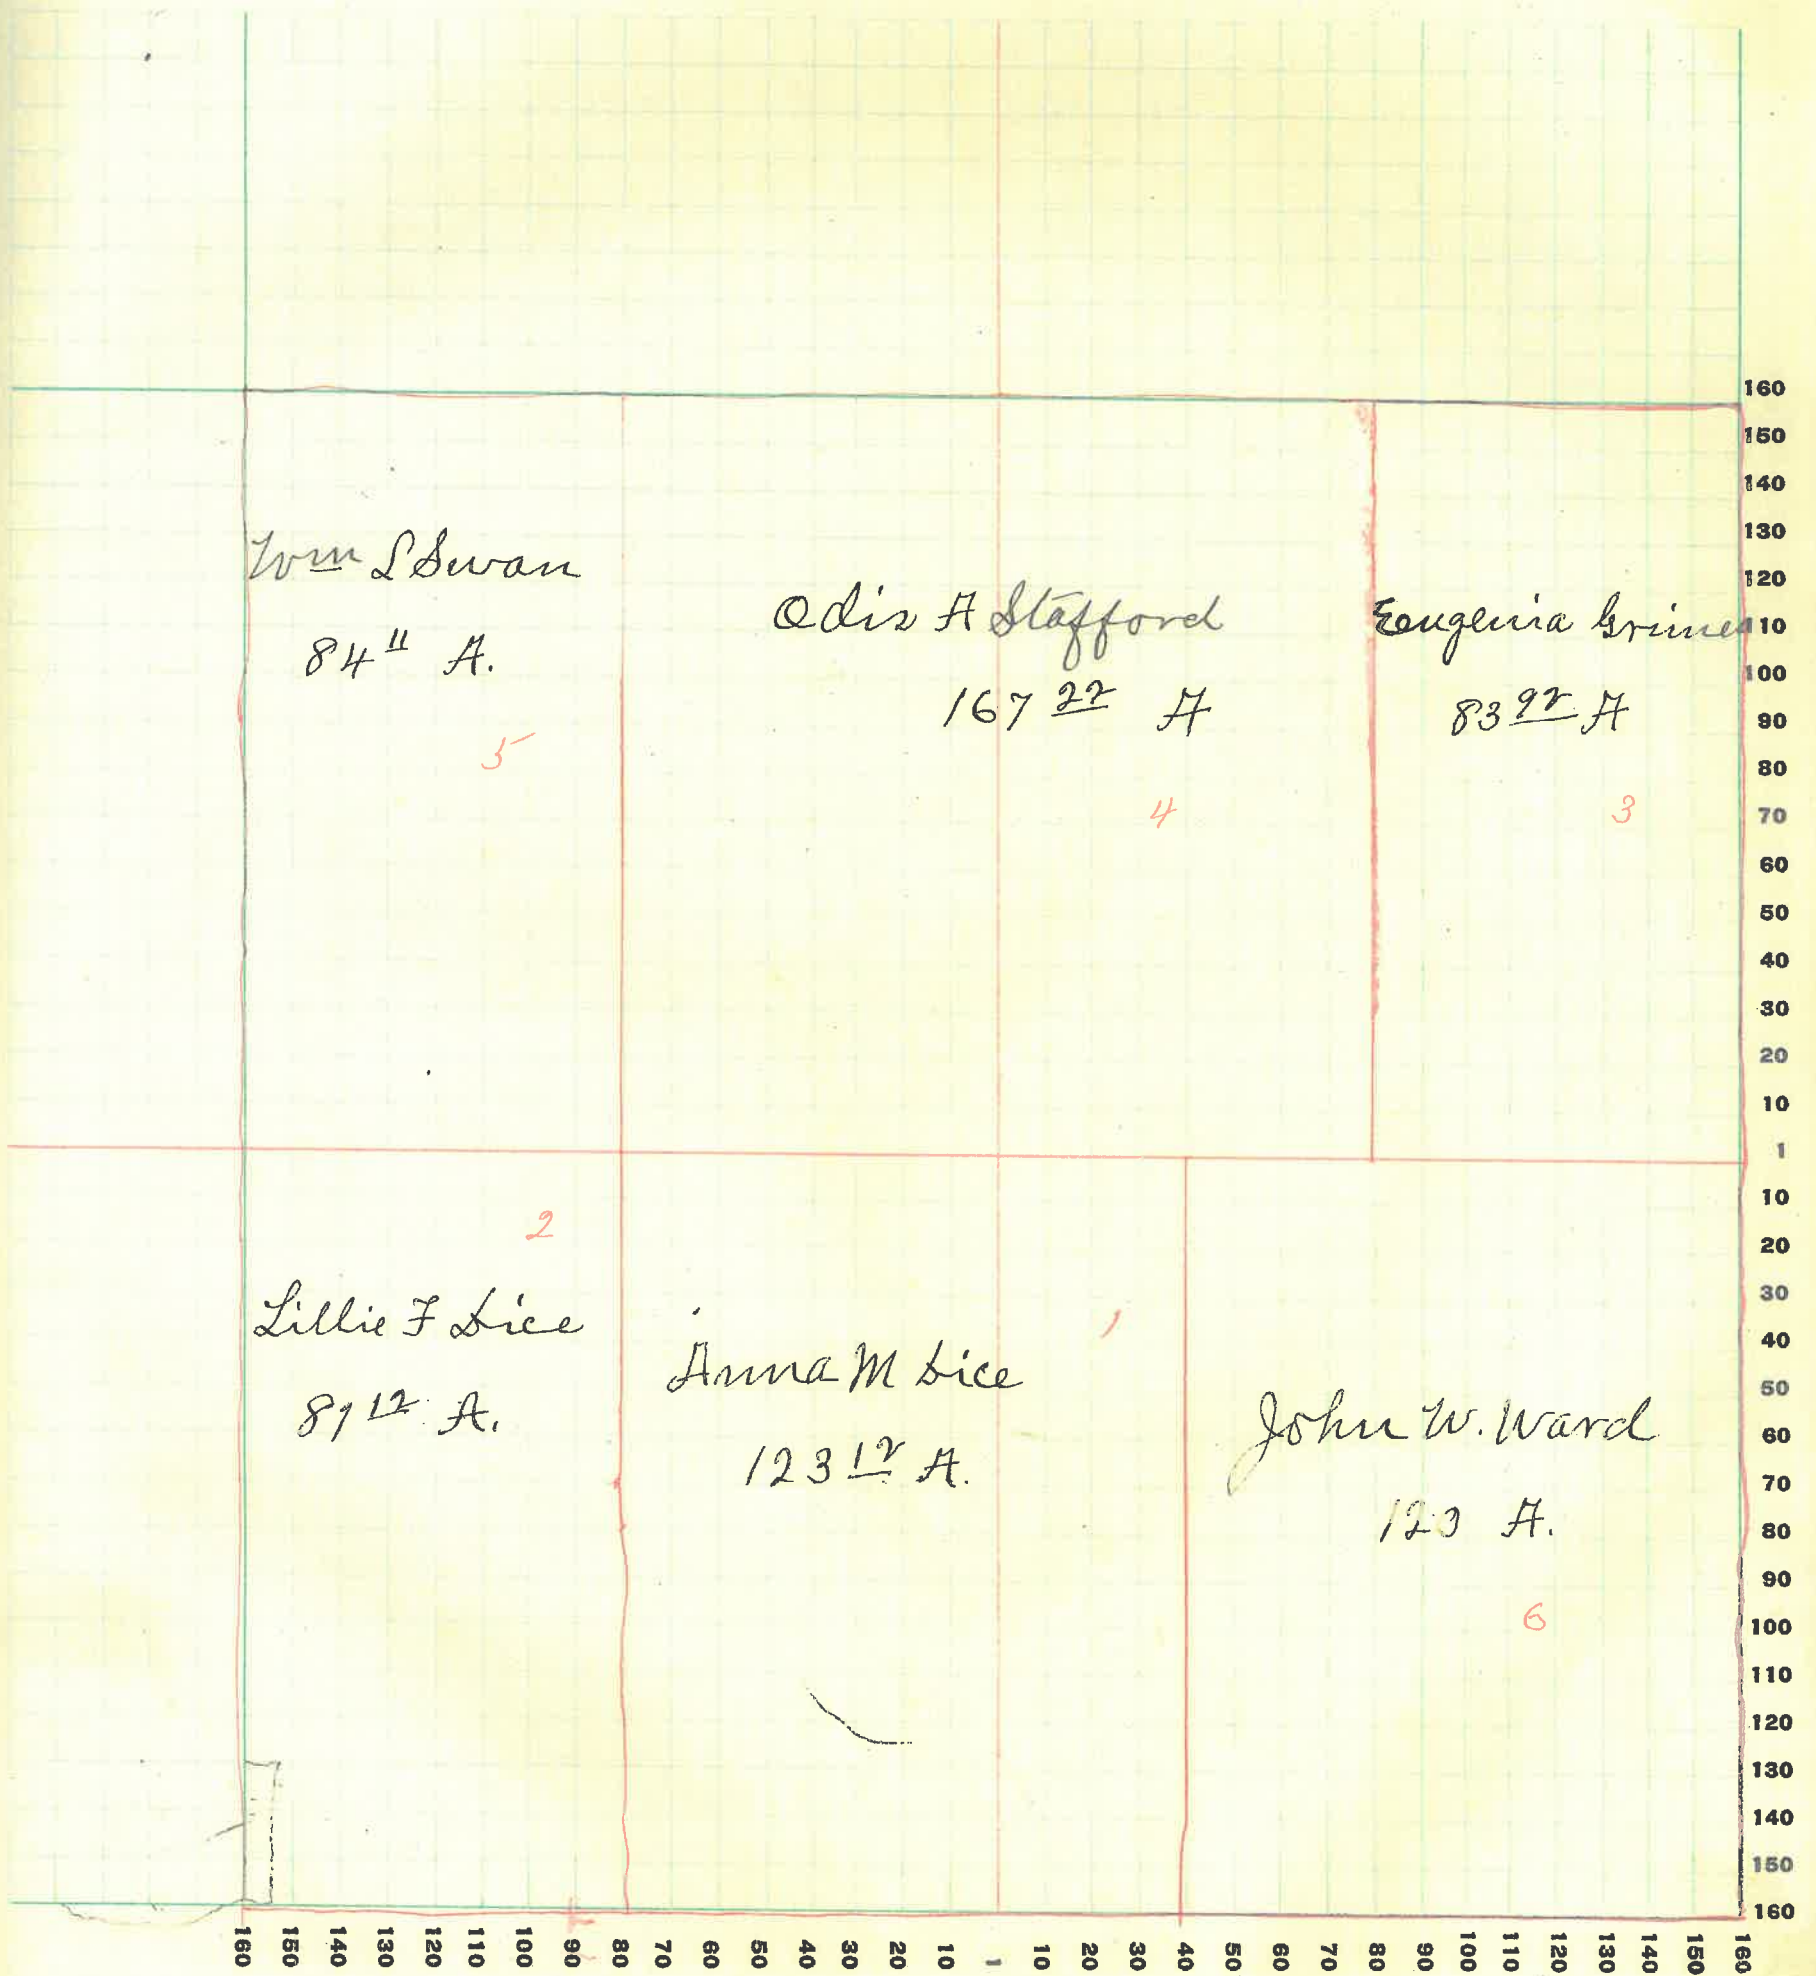 Wm L Swan
84 11 A.
5
Odis A Stafford
167 22 A
4
Eugenia Grimes
83 92 A
3
2
Lillie F Dice
81 12 A.
1
Anna M Dice
123 12 A.
John W. Ward
123 A.
6
160
150
140
130
120
110
100
90
80
70
60
50
40
30
20
10
1
10
20
30
40
50
60
70
80
90
100
110
120
130
140
150
160
160 150 140 130 120 110 100 90 80 70 60 50 40 30 20 10 1 10 20 30 40 50 60 70 80 90 100 110 120 130 140 150 160